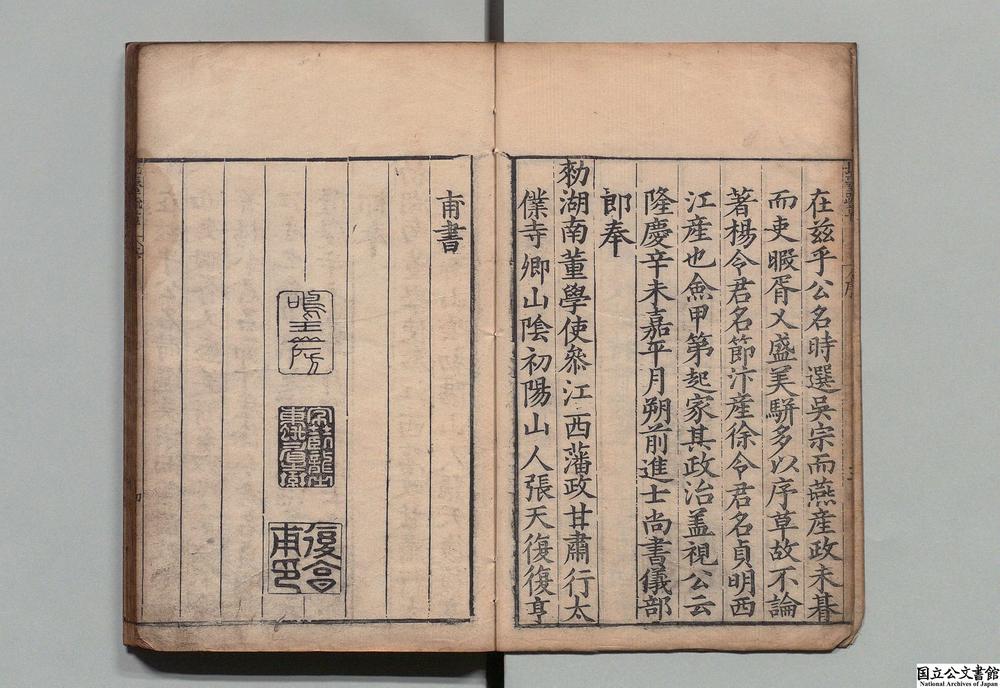 在兹乎公名時選吳宗而燕産政未朞
而吏暇胥乂盛美駢多以序草故不論
著楊令君名節汴産徐令君名貢明西
江産也僉甲第起家其政治盖視公云
隆慶辛未嘉平月朔前進士尚書儀部
郎奉
勑湖南董學使叅江西藩政甘肅行太
僕寺卿山陰初陽山人張天復復亨
甫書
鳴玉房
復亨
甫印
国立公文書館
National Archives of Japan